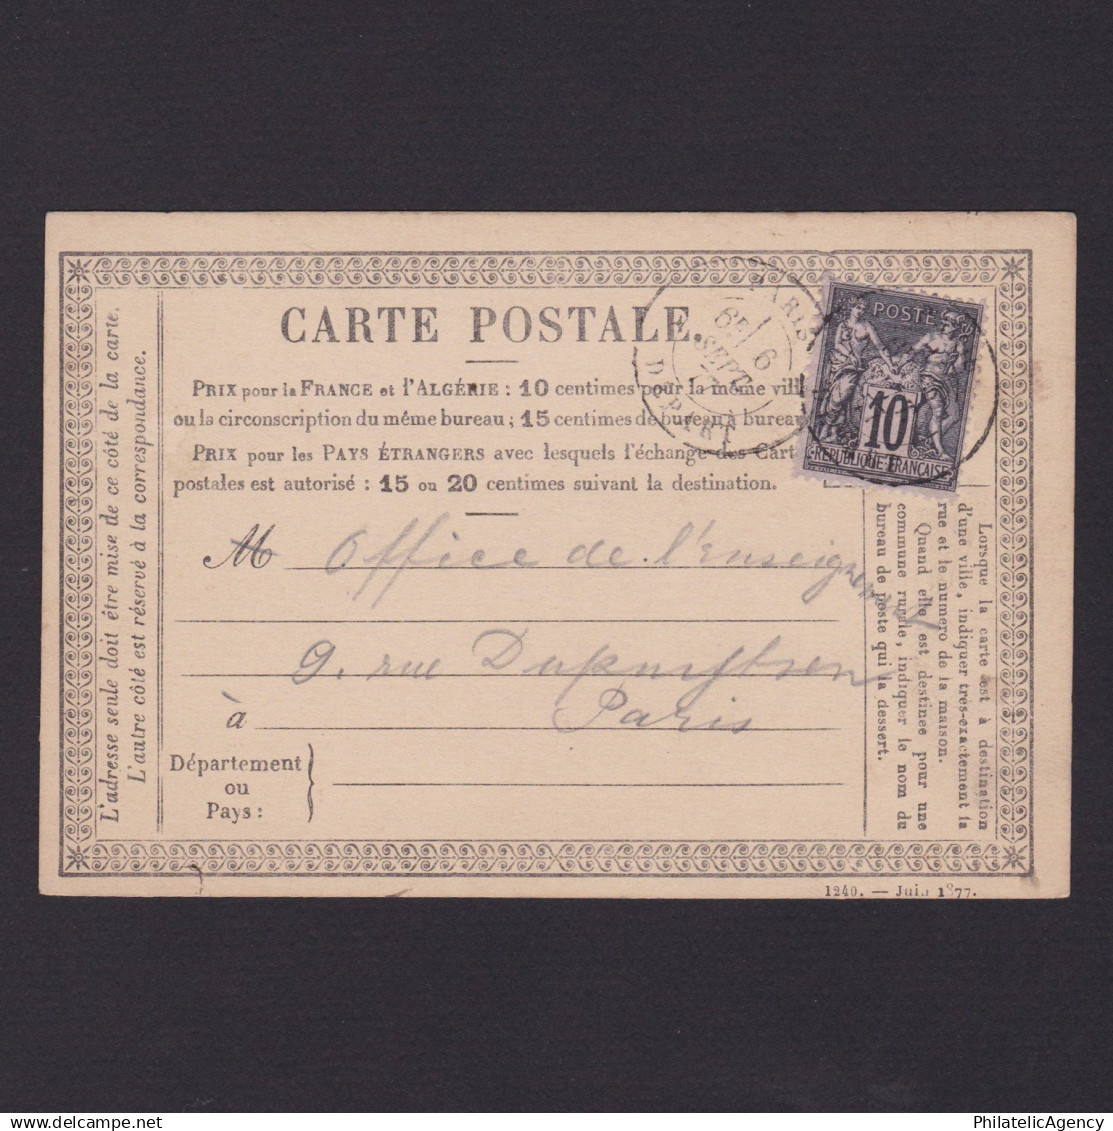 CARTE POSTALE.
PRIX pour la FRANCE et l'ALGÉRIE : 10 centimes pour la même ville
ou la circonscription du même bureau ; 15 centimes de bureau à bureau
PRIX pour les PAYS ÉTRANGERS avec lesquels l'échange des Cart
postales est autorisé : 15 ou 20 centimes suivant la destination.
M Office de l'Enseignement
9. rue Dupuytren
à Paris
Département
ou
Pays :
L'adresse seule doit être mise de ce côté de la carte.
L'autre côté est réservé à la correspondance.
Lorsque la carte est à destination
d'une ville, indiquer très-exactement la
rue et le numero de la maison.
Quand elle est destinée pour une
commune rurale, indiquer le nom du
bureau de poste qui la dessert.
PARIS
6
SEPT
DEPART
POSTE
10
REPUBLIQUE FRANCAISE
1240. — Juin 1877.
PhilatelicAgency